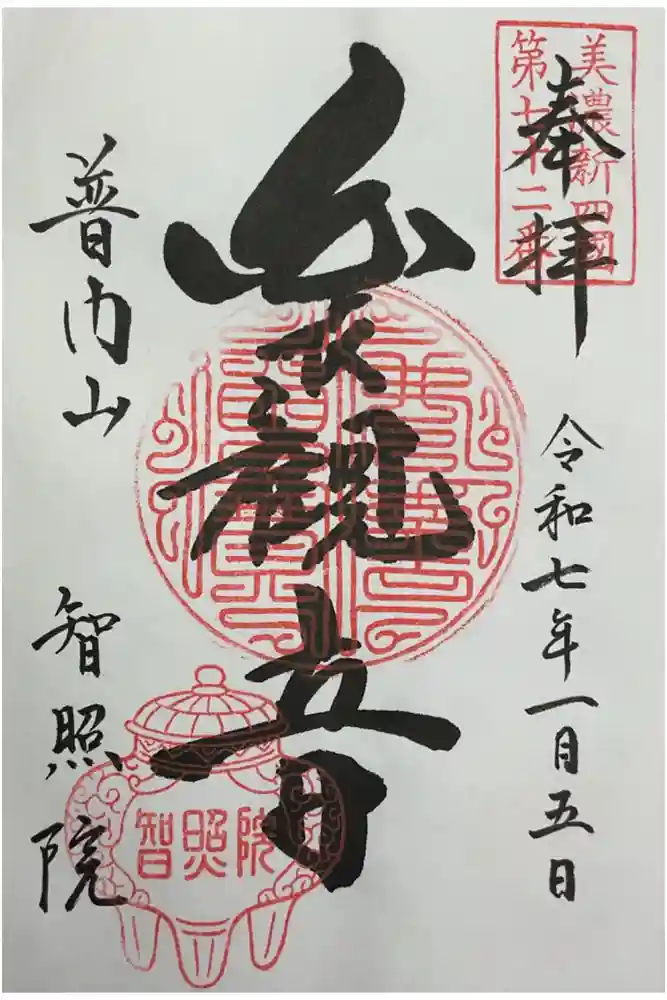 奉拝
美濃新四國
第七十二番
令和七年一月五日
観音
普門山
智照院
智照院